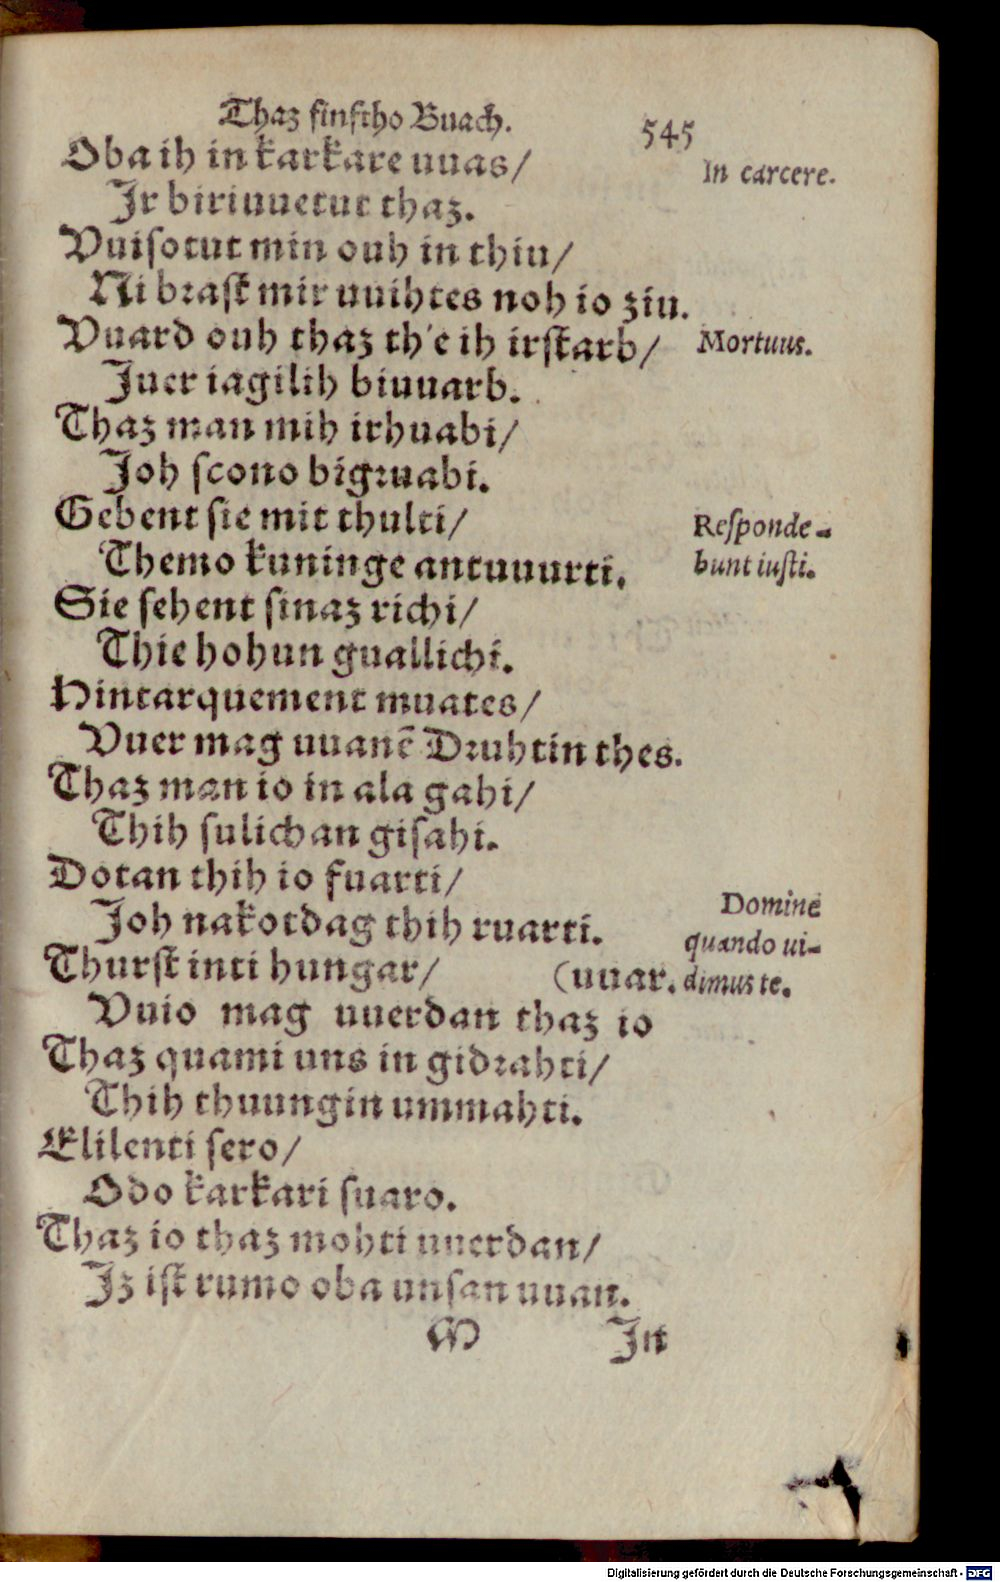 Thaz finftho Buach. 545
Oba ih in karkare uuas/ In carcere.
Jr biriuuetut thaz.
Vuisotut min ouh in thiu/
Ni brast mir uuihtes noh io ziu.
Vuard ouh thaz th'e ih irstarb/ Mortuus.
Juer iagilih biuuarb.
Thaz man mih irhuabi/
Joh scono bigruabi.
Gebent sie mit thulti/ Responde-
Themo kuninge antuuurti. bunt iusti.
Sie sehent sinaz richi/
Thie hohun guallichi.
Hintarquement muates/
Vuer mag uuanē Druhtin thes.
Thaz man io in ala gahi/
Thih sulichan gisahi.
Dotan thih io fuarti/
Joh nakotdag thih ruarti. Domine
quando ui-
Thurst inti hungar/ (uuar. dimus te.
Vuio mag uuerdan thaz io
Thaz quami uns in gidrahti/
Thih thuungin ummahti.
Elilenti sero/
Odo karkari suaro.
Thaz io thaz mohti uuerdan/
Jz ist rumo oba unsan uuan.
M Jn
Digitalisierung gefördert durch die Deutsche Forschungsgemeinschaft - DFG